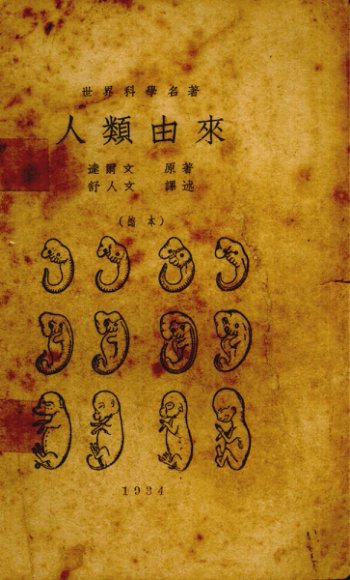 世界科學名著
人類由來
達爾文 原著
舒人文 譯述
(縮本)
1934